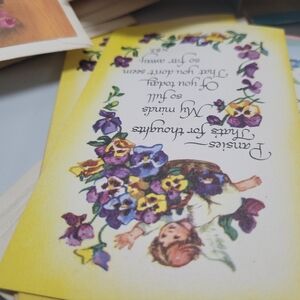 Pansies—
That's for thoughts
My mind's
so full
Of you today,
That you don't seem
so far away